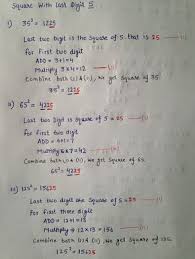 Square With Last Digit 5
i) 35² = 1225
Last two Digit is the Square of 5. that is 25 — (i)
For First two digit
ADD = 3+1=4
Multiply 3×4=12 — (ii)
Combine both (i) & (ii), we get Square of 35.
35² = 1225
ii) 65² = 4225
Last two Digit is Square of 5 = 25 — (i)
For first two digit
ADD = 6+1=7
Multiply 6×7=42 — (ii)
Combine both (i) & (ii), we get Square of 65.
65² = 4225
iii) 125² = 15625
Last two digit the Square of 5 = 25 — (i)
For first three digit
ADD = 12+1=13
Multiply = 12×13 = 156 — (ii)
Combine both (i) & (ii), we get Square of 125.
125² = 15625